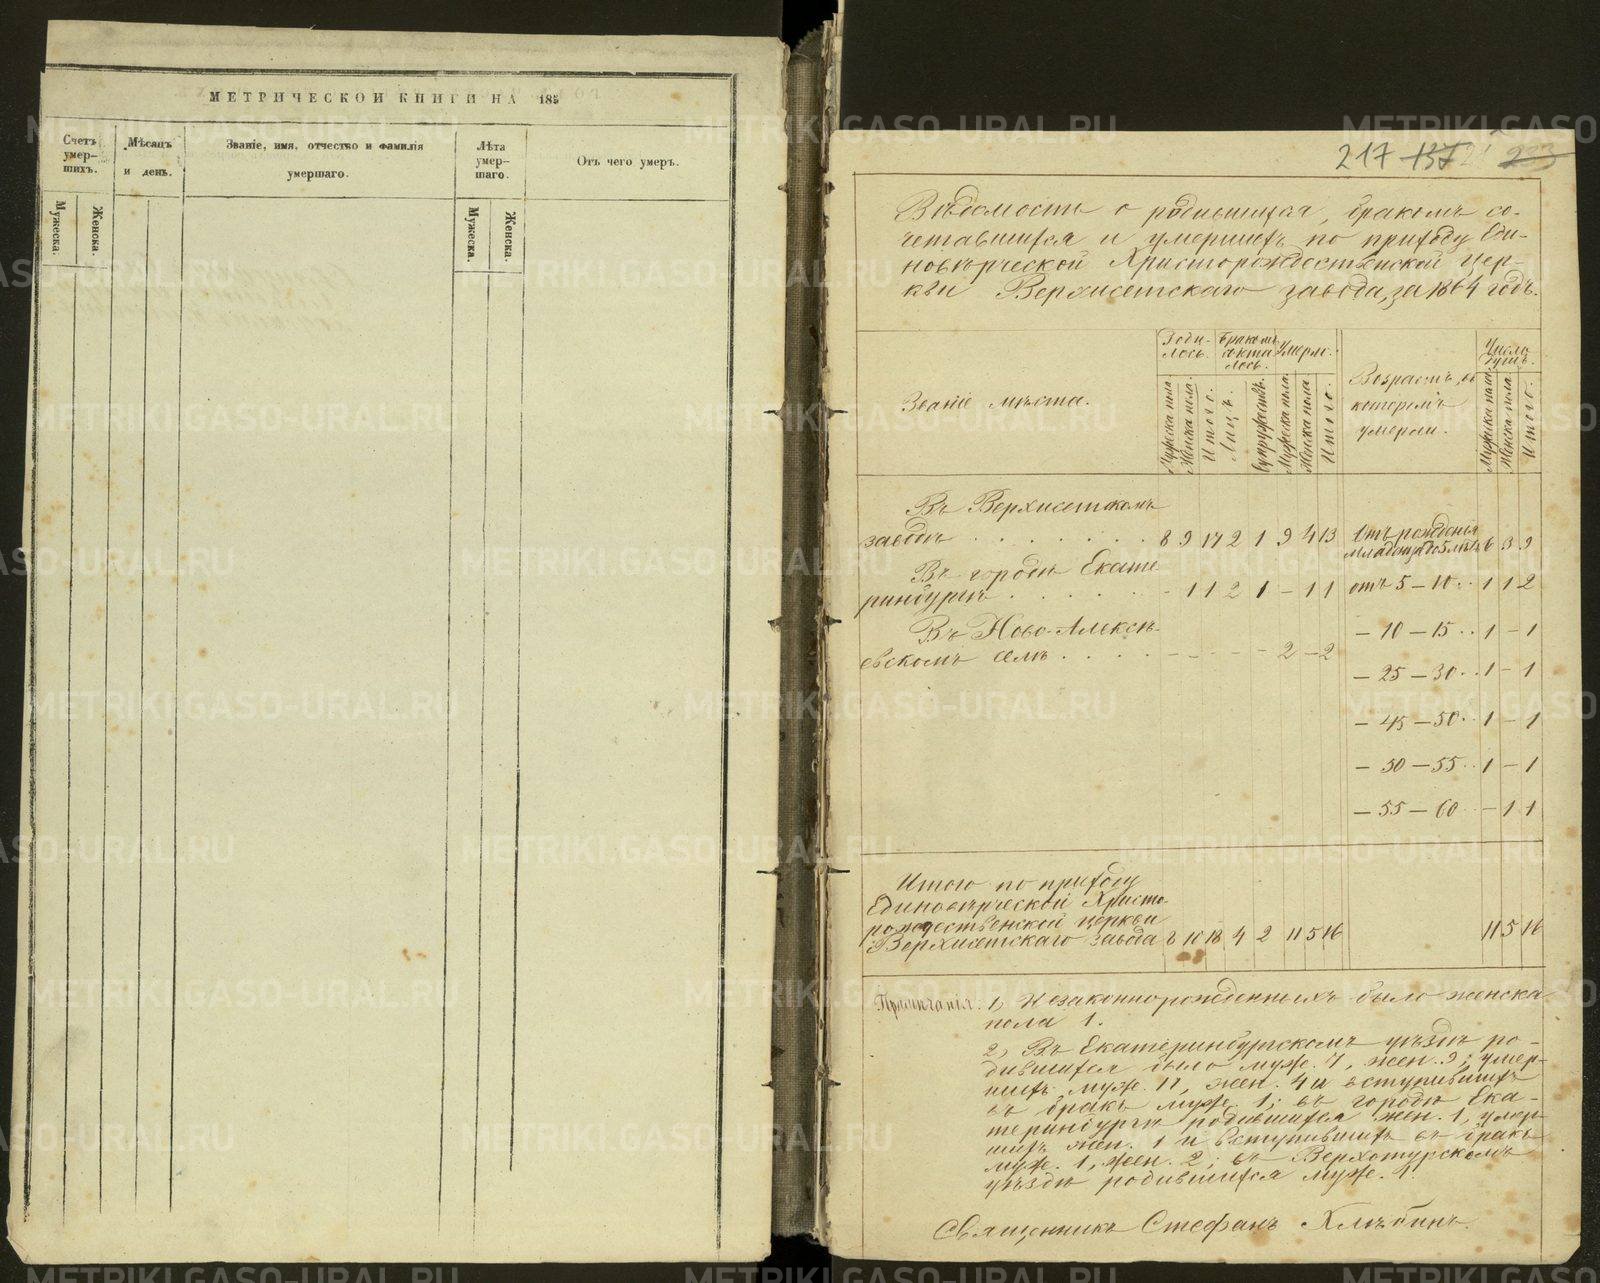 МЕТРИЧЕСКОЙ КНИГИ НА 185
Счетъ умер-шихъ.
Мѣсяцъ и день.
Званіе, имя, отчество и фамилія умершаго.
Лѣта умер-шаго.
Отъ чего умеръ.
Мужеска.
Женска.
Мужеска.
Женска.
217 137 223
Вѣдомость о родившихся, бракомъ со-
четавшихся и умершихъ по приходу Еди-
новѣрческой Христорождественской цер-
кви Верхисетскаго завода, за 1864 годъ.
Званіе мѣста.
Роди-лось.
Бракомъ
лось.
Умерло.
Возрастъ, въ
которомъ
умерли.
Число душъ.
Мужеска пола
Женска пола.
Итого.
Лицъ.
Супружествъ.
Мужеска пола.
Женска пола
Итого.
Мужеска пола.
Женска пола
Итого.
Въ Верхисетскомъ
заводѣ . . . . . . . 8 9 17 2 1 9 4 13
Въ городѣ Екате
ринбургѣ . . . . . . - 1 1 2 1 - 1 1
Въ Ново-Алексѣ-
евскомъ селѣ . . . . - - - - - 2 - 2
Отъ рожденія
6 3 9
отъ 5 - 10 . . 1 1 2
- 10 - 15 . . 1 - 1
- 25 - 30 . . 1 - 1
- 45 - 50 . . 1 - 1
- 50 - 55 . . 1 - 1
- 55 - 60 - 1 1
Итого по приходу
Единовѣрческой Христо
рождественской церкви
Верхисетскаго завода 8 10 18 4 2 11 5 16 11 5 16
Примѣчанія: 1, Незаконнорожденныхъ было женска
пола 1.
2, Въ Екатеринбургскомъ уѣздѣ ро-
дившихся было муж. 7, жен. 9; умер-
шихъ муж. 11, жен. 4 и вступившихъ
въ бракъ муж. 1; въ городѣ Ека-
теринбургѣ родившихся жен. 1, умер-
шихъ жен. 1 и вступившихъ въ бракъ
муж. 1, жен. 2; въ Верхотурскомъ
уѣздѣ родившихся муж. 1.
Священникъ Стефанъ Хлѣбинъ.
METRIKI.GASO-URAL.RU